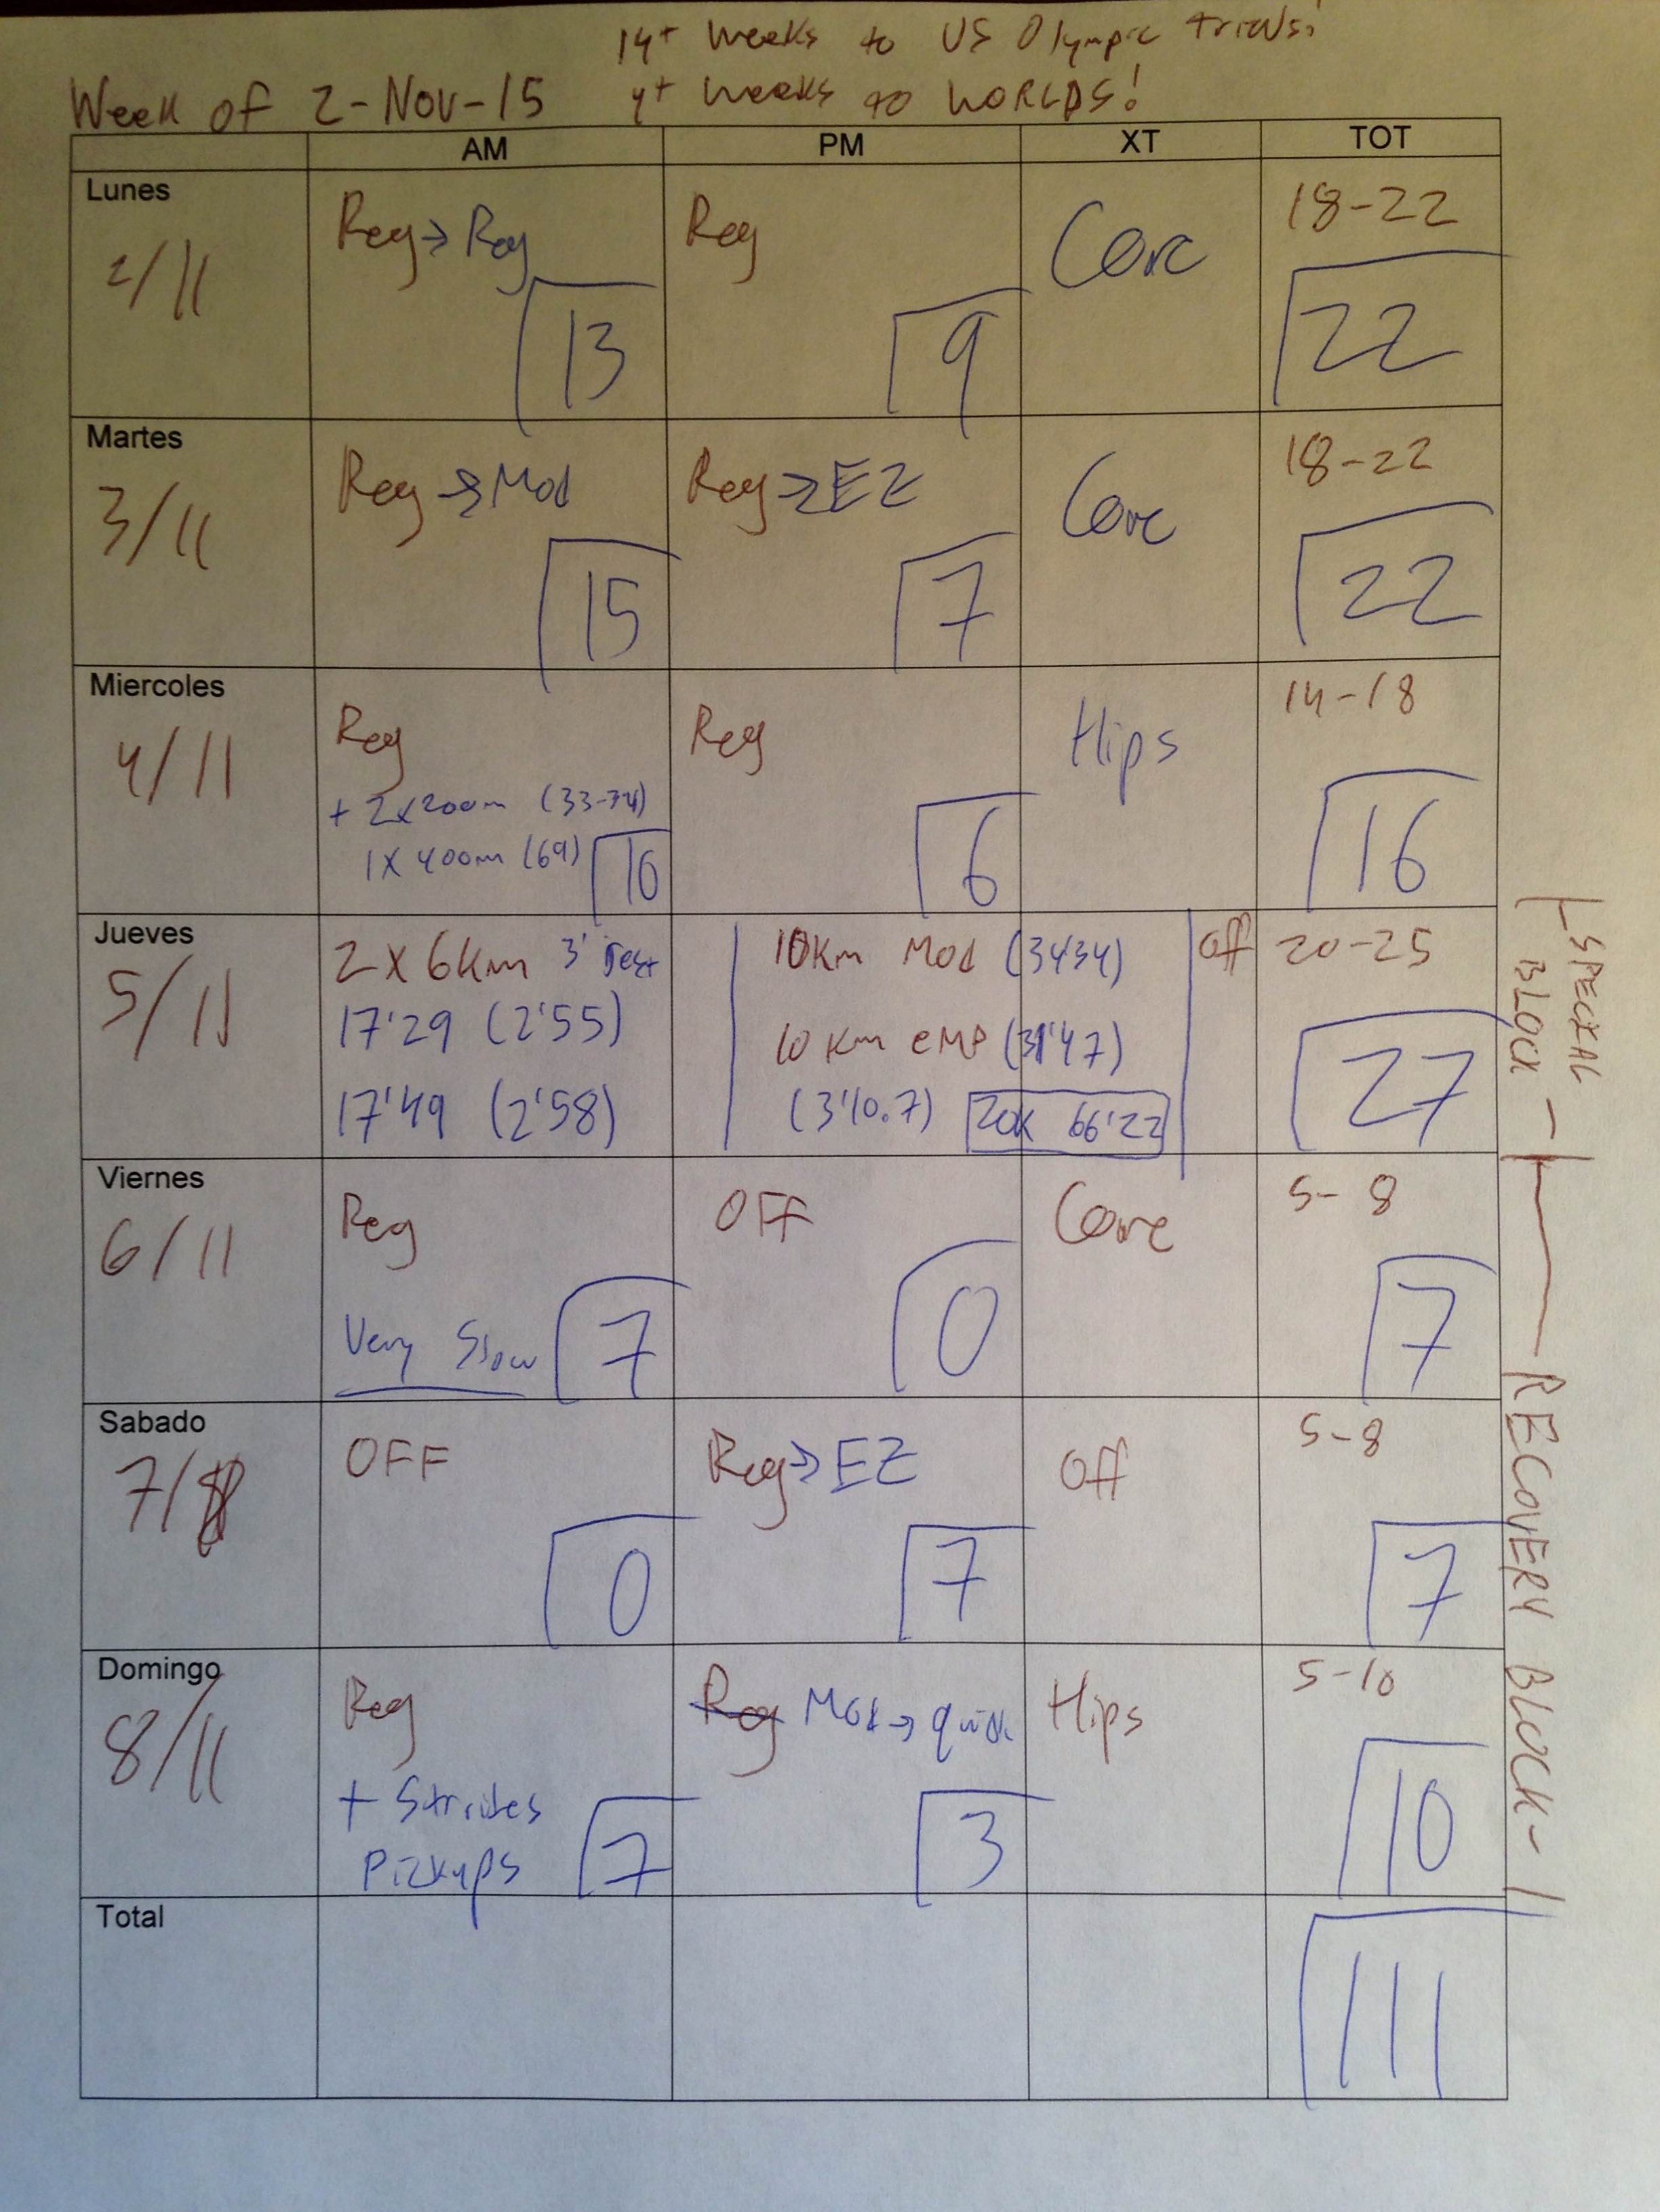 14+ weeks to US Olympic trials!
Week of 2-Nov-15 4+ weeks to WORLDS!
AM PM XT TOT
Lunes Reg→Reg Reg Core 18-22
2/11 13 9 22
Martes Reg→Mod Reg→EZ Core 18-22
3/11 15 7 22
Miercoles Reg Reg Hips 14-18
4/11 + 2x200m (33-34)
1x400m (69) 10 6 16
Jueves 2x6km 3' rest 10km Mod (3434) Off 20-25
5/11 17'29 (2'55) 10km eMP (31'47) 27
17'49 (2'58) (3'10.7) 20K 66'22
SPECIAL BLOCK
Viernes Reg OFF Core 5-8
6/11 Very Slow 7 0 7
Sabado OFF Reg→EZ Off 5-8
7/ 0 7 7
Domingo Reg Reg Mod→quick Hips 5-10
8/11 + Strides
Pickups 7 3 10
RECOVERY BLOCK
Total 111